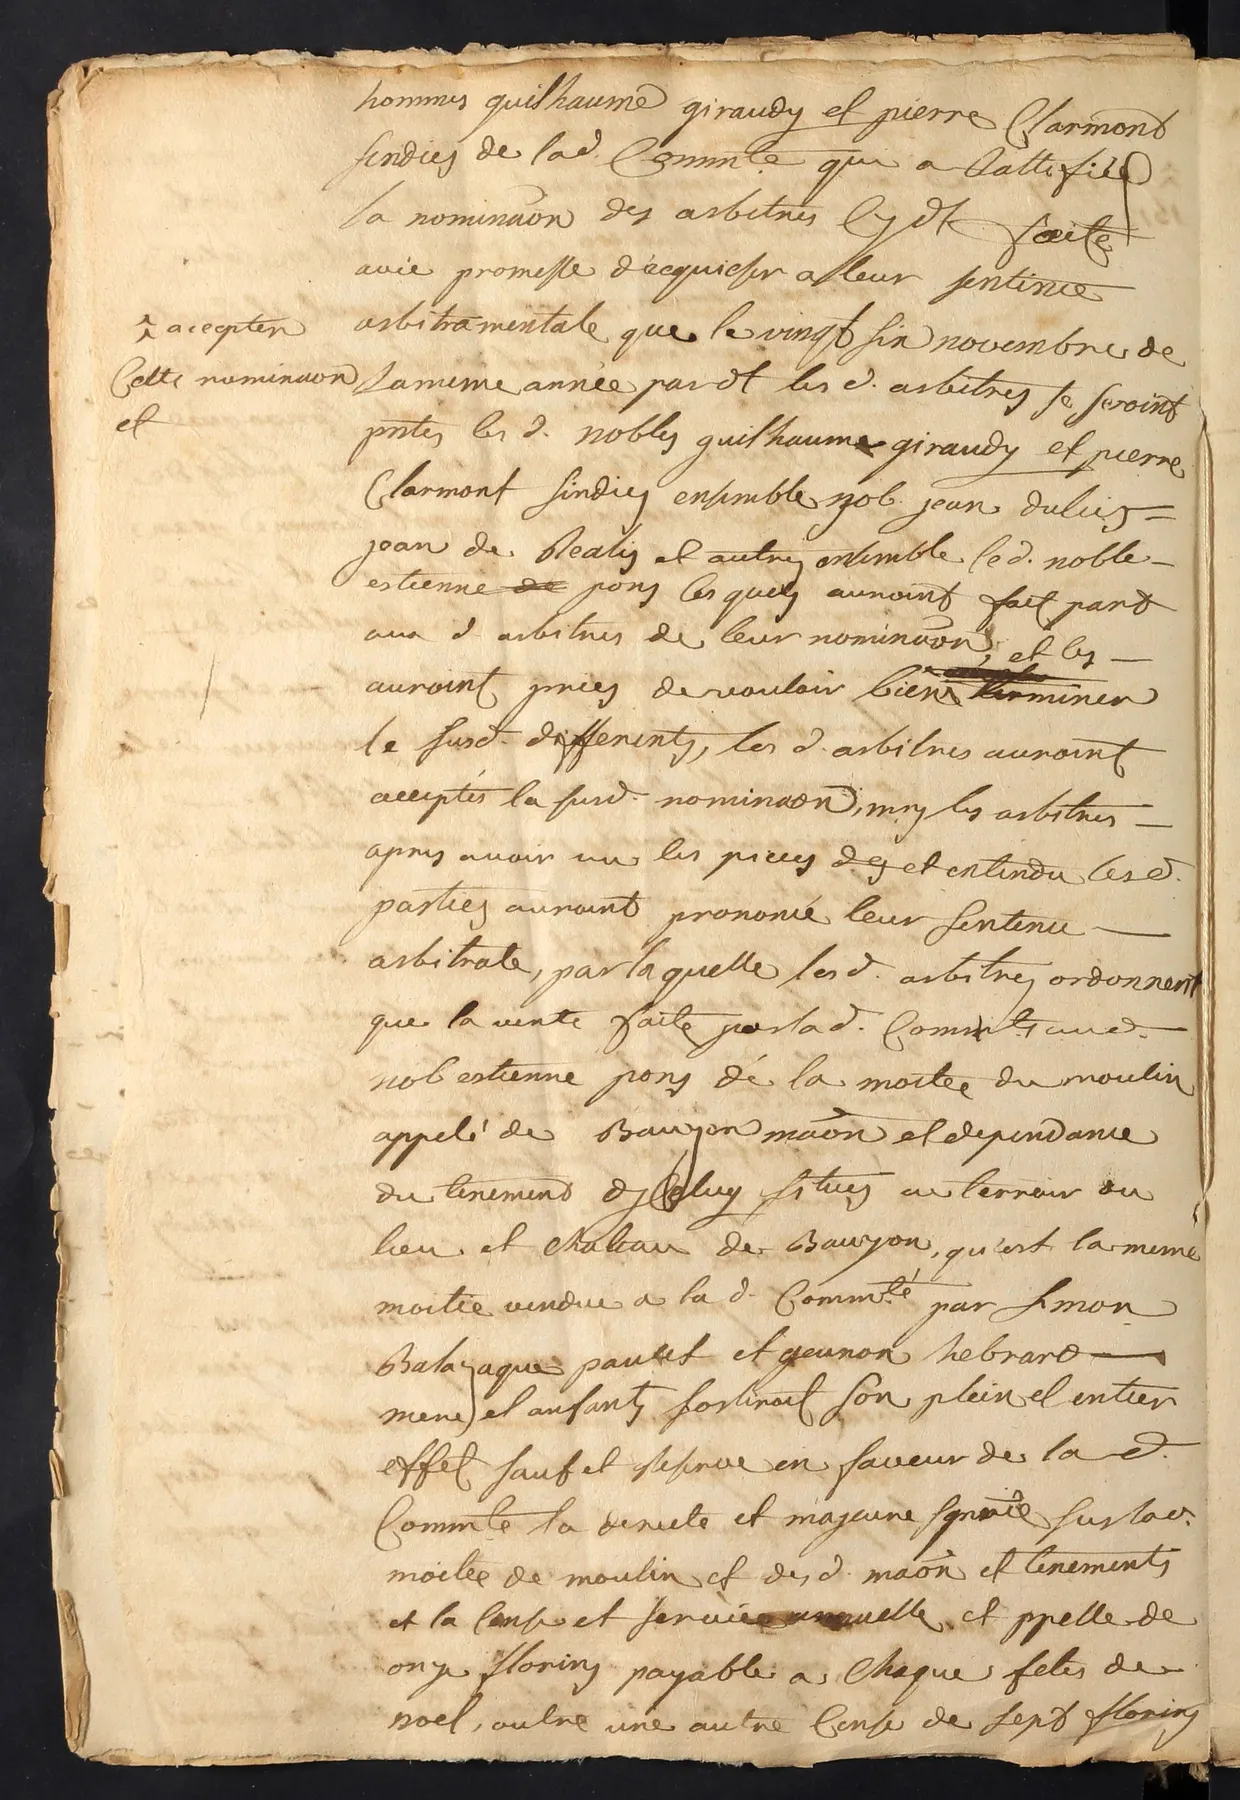 hommes guilhaume giraudy et pierre Clarmont
sindics de lad. Commte qui a Rattifiée
la nominaon des arbitres cy dt faite
avec promesse d'acquieser a leur sentence
arbitramentale que le vingt six novembre de
^ accepter
Cette nominaon
et
La meme année pardt les d. arbitres se seroint
pntés les d. nobles guilhaume giraudy et pierre
Clarmont sindics ensemble nob. jean
jean de Realis et autres ensemble led. noble
estienne de pons lesquels auroint fait part
aux d. arbitres de leur nominaon, et les
auroint pries de vouloir bien terminer
le susd. differents, les d. arbitres auroint
acceptés la susd. nominaon, les arbitres
apres avoir vu les pieces des et entendu lesd.
parties auroint prononcé leur sentence
arbitrale, par laquelle lesd. arbitres ordonnent
que la vente faite parlad. Commte aud.
nob estienne pons de la moitee du moulin
appelé de Bauzon maon et dependance
du tenement situes au terroir du
lieu et chateau de Bauzon, qu'est la meme
moitee vendue a la d. Commté par simon
et jeunon hebrard
mere et anfants sortiroit son plein et entier
effet sauf et reserve en faveur de la d.
Commte la directe et majeure sgnrie surlad.
moitee de moulin et des d. maon et tenements
et la cense et service annuelle et ppelle de
onze florins payable a chaque fetes de
noel, outre une autre cense de sept florins